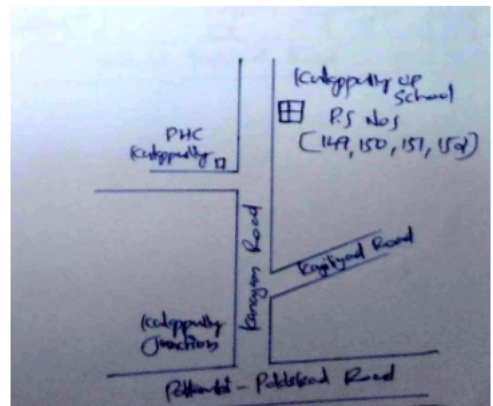 Kulappully UP
School
P.S Nos
(149, 150, 151, 152)
PHC
Kulappully
Road
Road
Kulappully
Junction
Pattambi - Palakkad Road